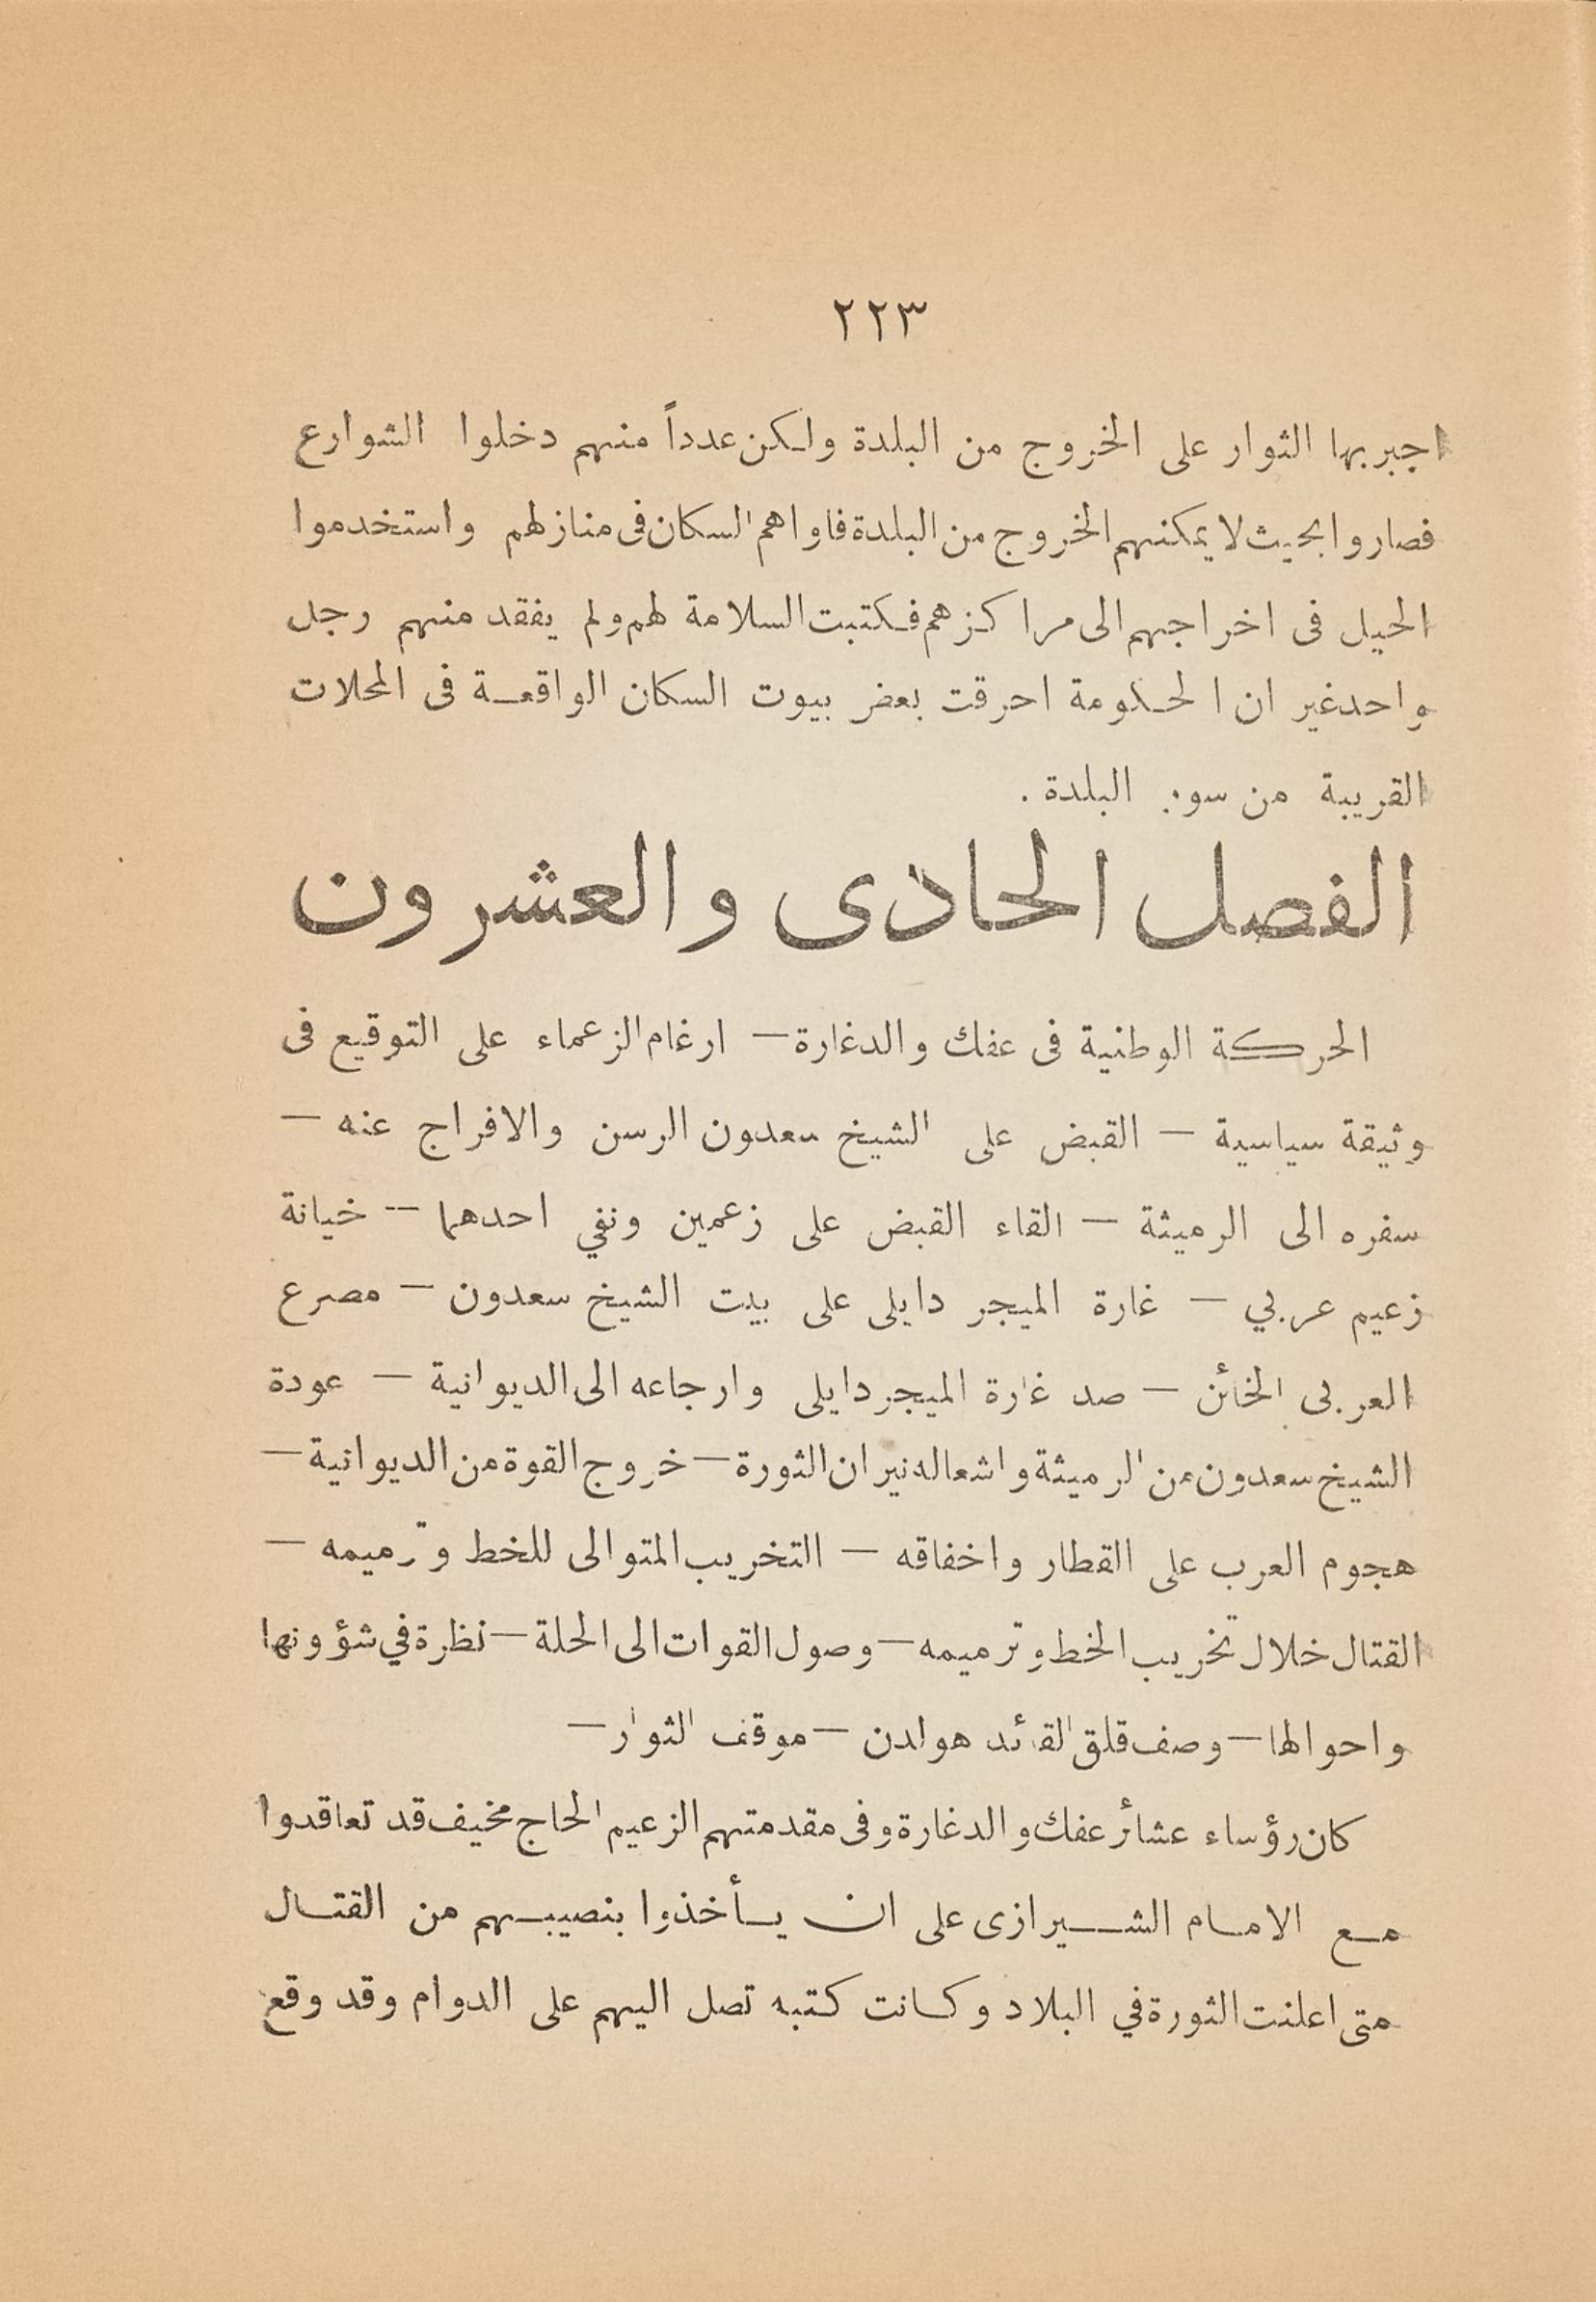 ٢٢٣
اجبر بها الثوار على الخروج من البلدة ولكن عدداً منهم دخلوا الشوارع
فصاروا بحيث لا يمكنهم الخروج من البلدة فاواهم السكان فى منازلهم واستخدموا
الحيل فى اخراجهم الى مراكزهم فكتبت السلامة لهم ولم يفقد منهم رجل
واحد غير ان الحكومة احرقت بعض بيوت السكان الواقعة فى المحلات
القريبة من سور البلدة .
الفصل الحادى والعشرون
الحركة الوطنية فى عفك والدغارة — ارغام الزعماء على التوقيع فى
وثيقة سياسية — القبض على الشيخ سعدون الرسن والافراج عنه —
سفره الى الرميثة — القاء القبض على زعمين ونفي احدهما — خيانة
زعيم عربي — غارة الميجر دايلى على بيت الشيخ سعدون — مصرع
العربى الخائن — صد غارة الميجر دايلى وارجاعه الى الديوانية — عودة
الشيخ سعدون من الرميثة واشعاله نيران الثورة — خروج القوة من الديوانية —
هجوم العرب على القطار واخفاقه — التخريب المتوالى للخط وترميمه —
القتال خلال تخريب الخط وترميمه — وصول القوات الى الحلة — نظرة في شؤونها
واحوالها — وصف قلق القائد هولدن — موقف الثوار —
كان رؤساء عشائر عفك والدغارة وفى مقدمتهم الزعيم الحاج مخيف قد تعاقدوا
مع الامام الشيرازى على ان يأخذوا بنصيبهم من القتال
متى اعلنت الثورة في البلاد وكانت كتبه تصل اليهم على الدوام وقد وقع